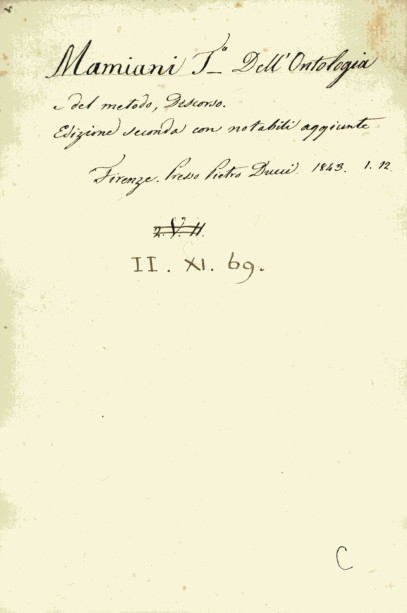 Mamiani T.º Dell'Ontologia
e del metodo, Discorso.
Edizione seconda con notabili aggiunte
Firenze. Presso Pietro Ducci 1843. 1.12
2.V.11.
II. XI. 69.
C